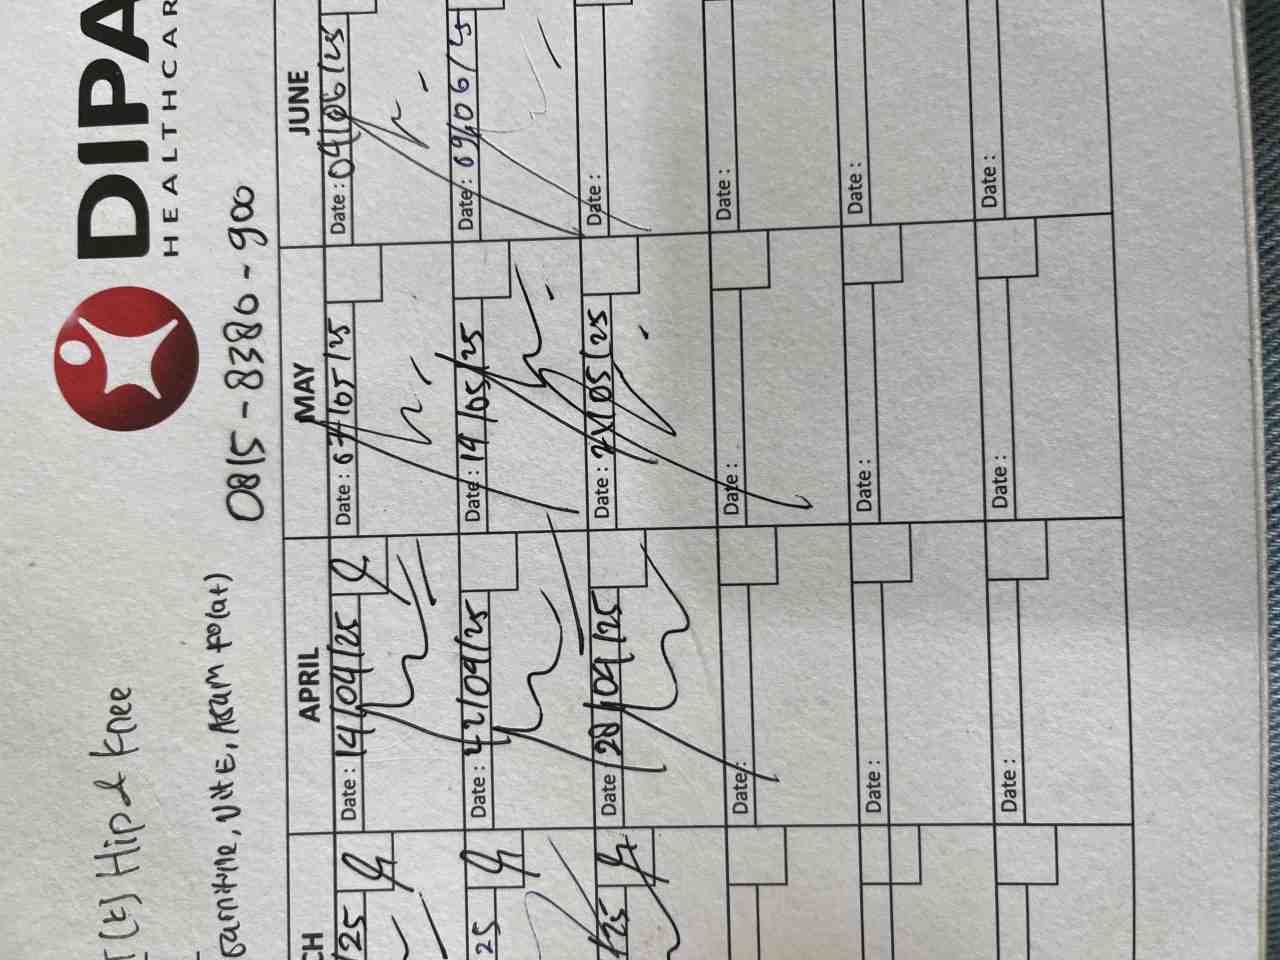 DIPA
HEALTHCAR
(t) Hip & Knee
0815-8380-900
CH
APRIL
MAY
JUNE
/25
Date : 14/04/25
Date : 07/05/25
Date : 04/06/25
25
Date : 22/04/25
Date : 14/05/25
Date : 09/06/25
/25
Date : 28/04/25
Date : 21/05/25
Date :
Date :
Date :
Date :
Date :
Date :
Date :
Date :
Date :
Date :